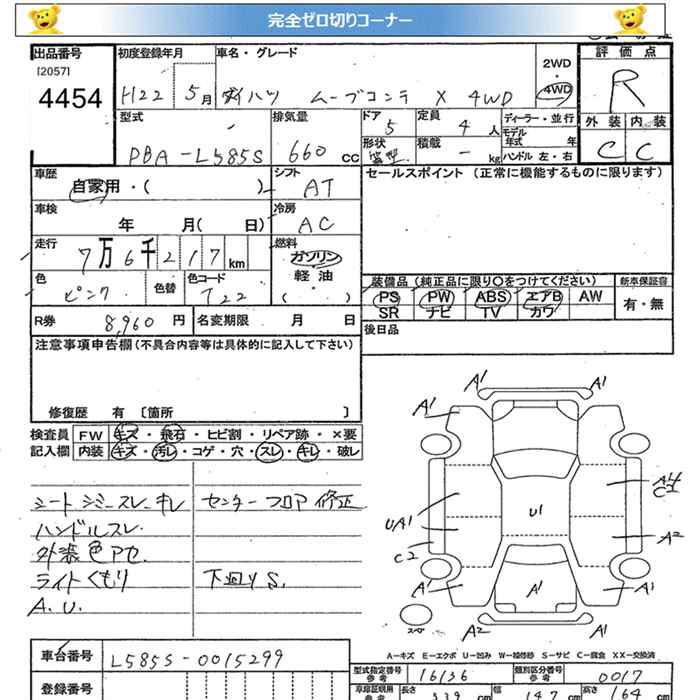 完全ゼロ切りコーナー
出品番号 初度登録年月 車名・グレード 2WD 評価点
[2057]
4454 H22 5月 ダイハツ ムーブコンテ X 4WD 4WD R
型式 排気量 ドア 定員 ディーラー・並行 外装 内装
PBA-L585S 660cc 5 4人 モデル年式 年 C C
形状 積載 -kg ハンドル 左・右
車歴 シフト セールスポイント (正常に機能するものに限ります)
自家用・( ) AT
車検 冷房
年 月( 日) AC
走行 燃料
7万6千217km ガソリン
軽油
色 色替 色コード ( ) 装備品(純正品に限り○をつけてください) 新車保証書
ピンク T22 PS PW ABS エアB AW 有・無
SR ナビ TV カワ
R券 8,960円 名変期限 月 日 後日品
注意事項申告欄(不具合内容等は具体的に記入して下さい)
修復歴 有 〔箇所 〕
検査員 FW キズ・飛石・ヒビ割・リペア跡・×要
記入欄 内装 キズ・汚レ・コゲ・穴・スレ・キレ・破レ
シートシミ スレ キレ センターフロア修正
ハンドルスレ.
外装色アセ.
ライトくもり 下廻りS.
A.U.
A1 A1
A1
A4
C1
U1
UA1
A2
C2
A1 A1 A1
スペア
A2 A1
A-キズ E-エクボ U-凹み W-補修跡 S-サビ C-腐食 XX-交換済
車台番号 L585S-0015299 型式指定番号 16136 類別区分番号 0017
参考 参考
登録番号 車庫証明用 長さ 339cm 幅 147cm 高さ 164cm
参考